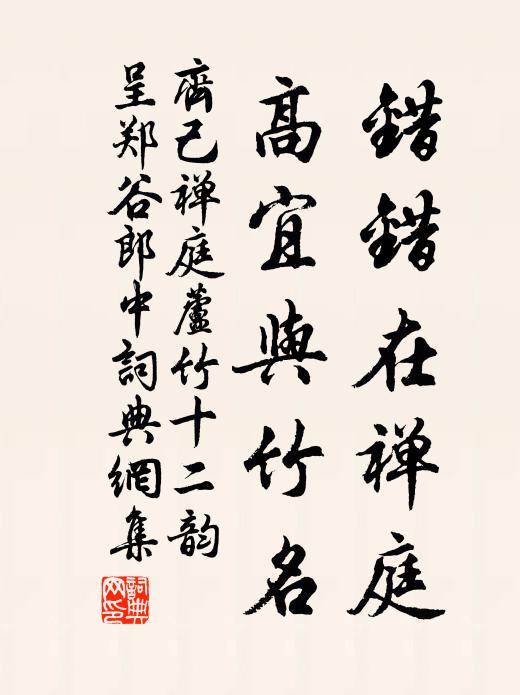 錯錯在禅庭
高宜與竹名
齊己禅庭蘆竹十二韵
呈郑谷郎中詞典網集
詞典
网印